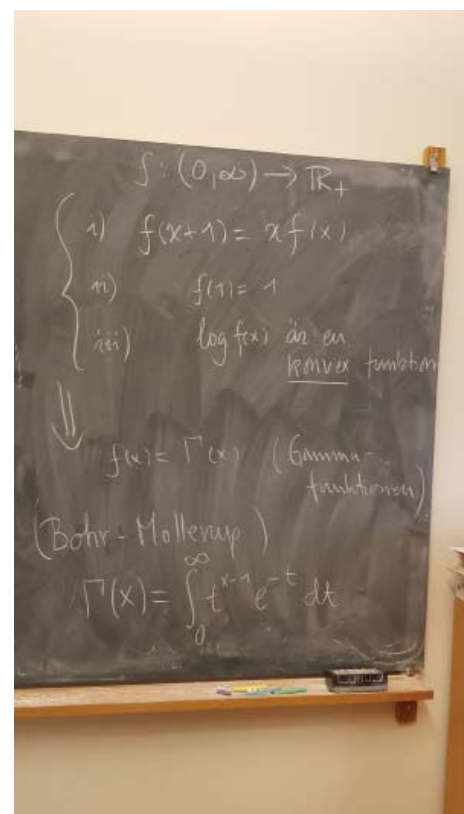 f : (0,∞) → ℝ₊
i) f(x+1) = x f(x)
ii) f(1) = 1
iii) log f(x) är en
konvex funktion
⇓
f(x) = Γ(x) (Gamma-
funktionen)
(Bohr-Mollerup)
Γ(x) = ∫₀^∞ t^{x-1} e^{-t} dt